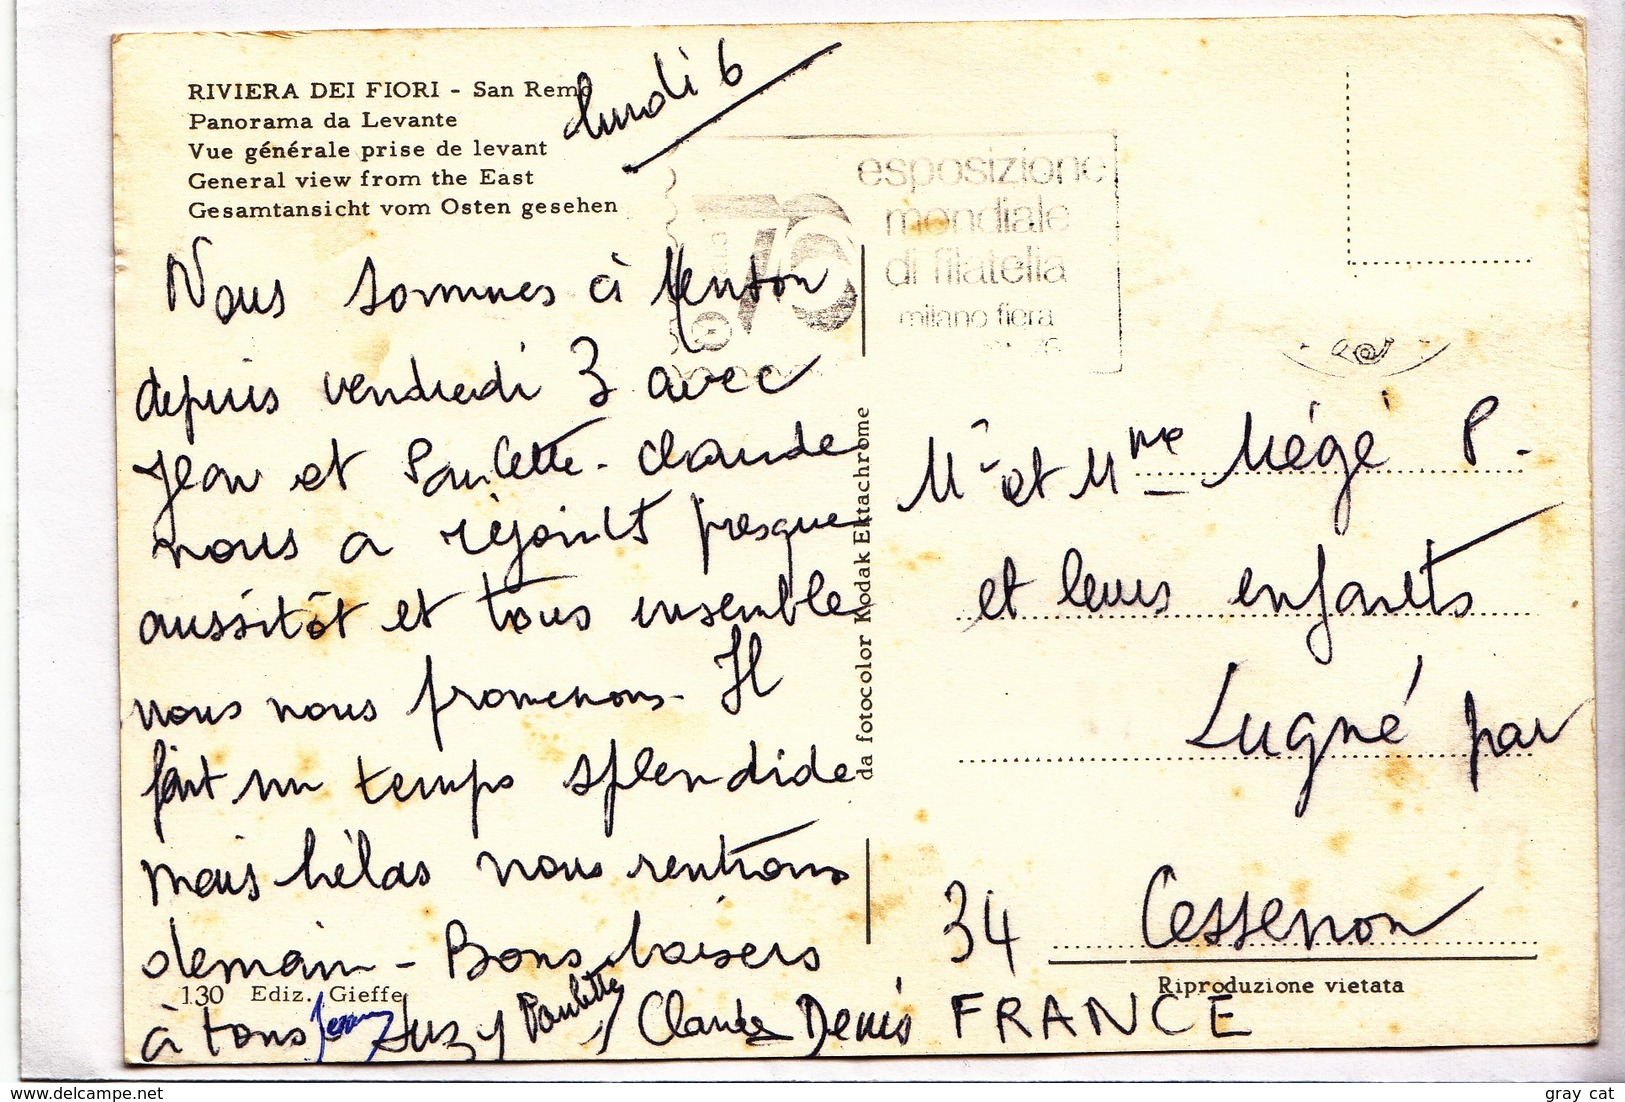 RIVIERA DEI FIORI - San Remo
Panorama da Levante
Vue générale prise de levant
General view from the East
Gesamtansicht vom Osten gesehen
lundi 6
esposizione
mondiale
di filatelia
milano fiera
76
Nous sommes à Menton
depuis vendredi 3 avec
Jean et Paulette - Claude
nous a rejoint presque
aussitôt et tous ensemble
nous nous promenons. Il
fait un temps splendide
mais hélas nous rentrons
demain - Bons baisers
à tous Jean Suzy Paulette Claude Denis
130 Ediz. Gieffe
da fotocolor Kodak Ektachrome
Mr et Mme Mégé P.
et leurs enfants
Lugné par
34 Cessenon
Riproduzione vietata
FRANCE
delcampe.net
gray cat